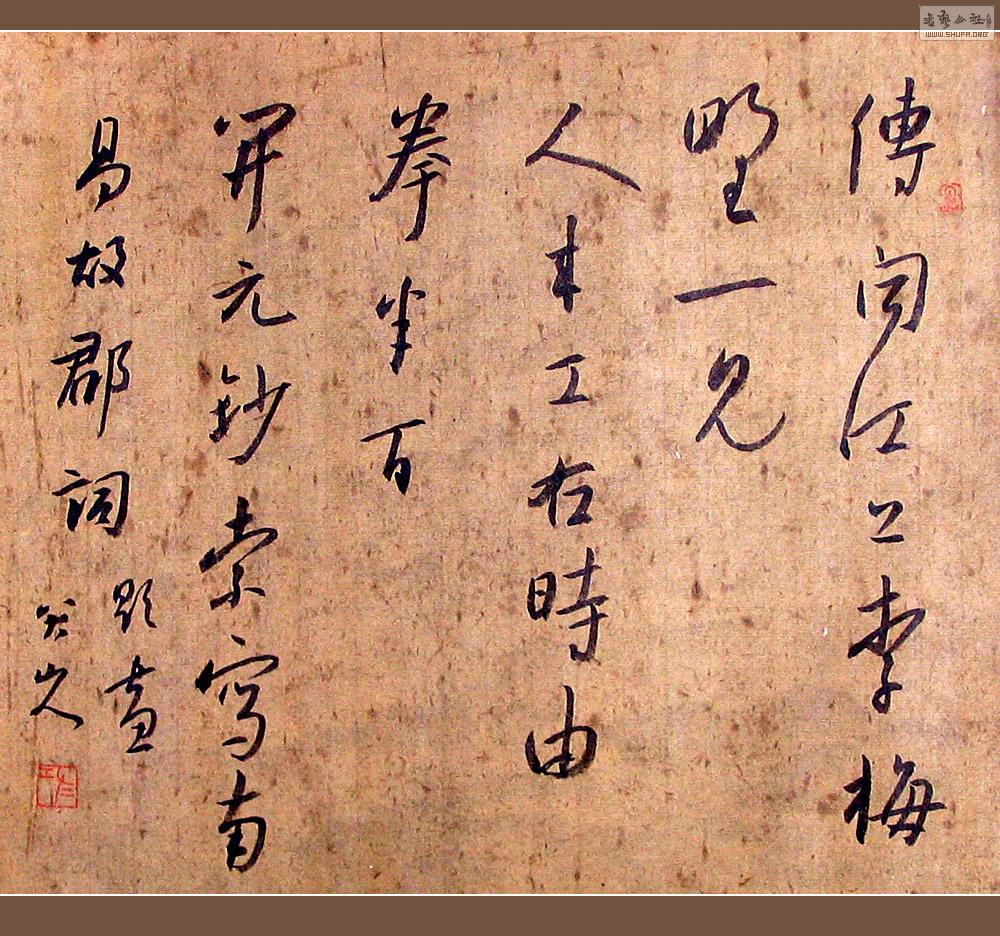 傳聞江上李梅
野一見
人來工右時由
拳半百
開元鈔索寫南
昌故郡詞
題畫
八大山人
書藝公社
WWW.SHUFA.ORG